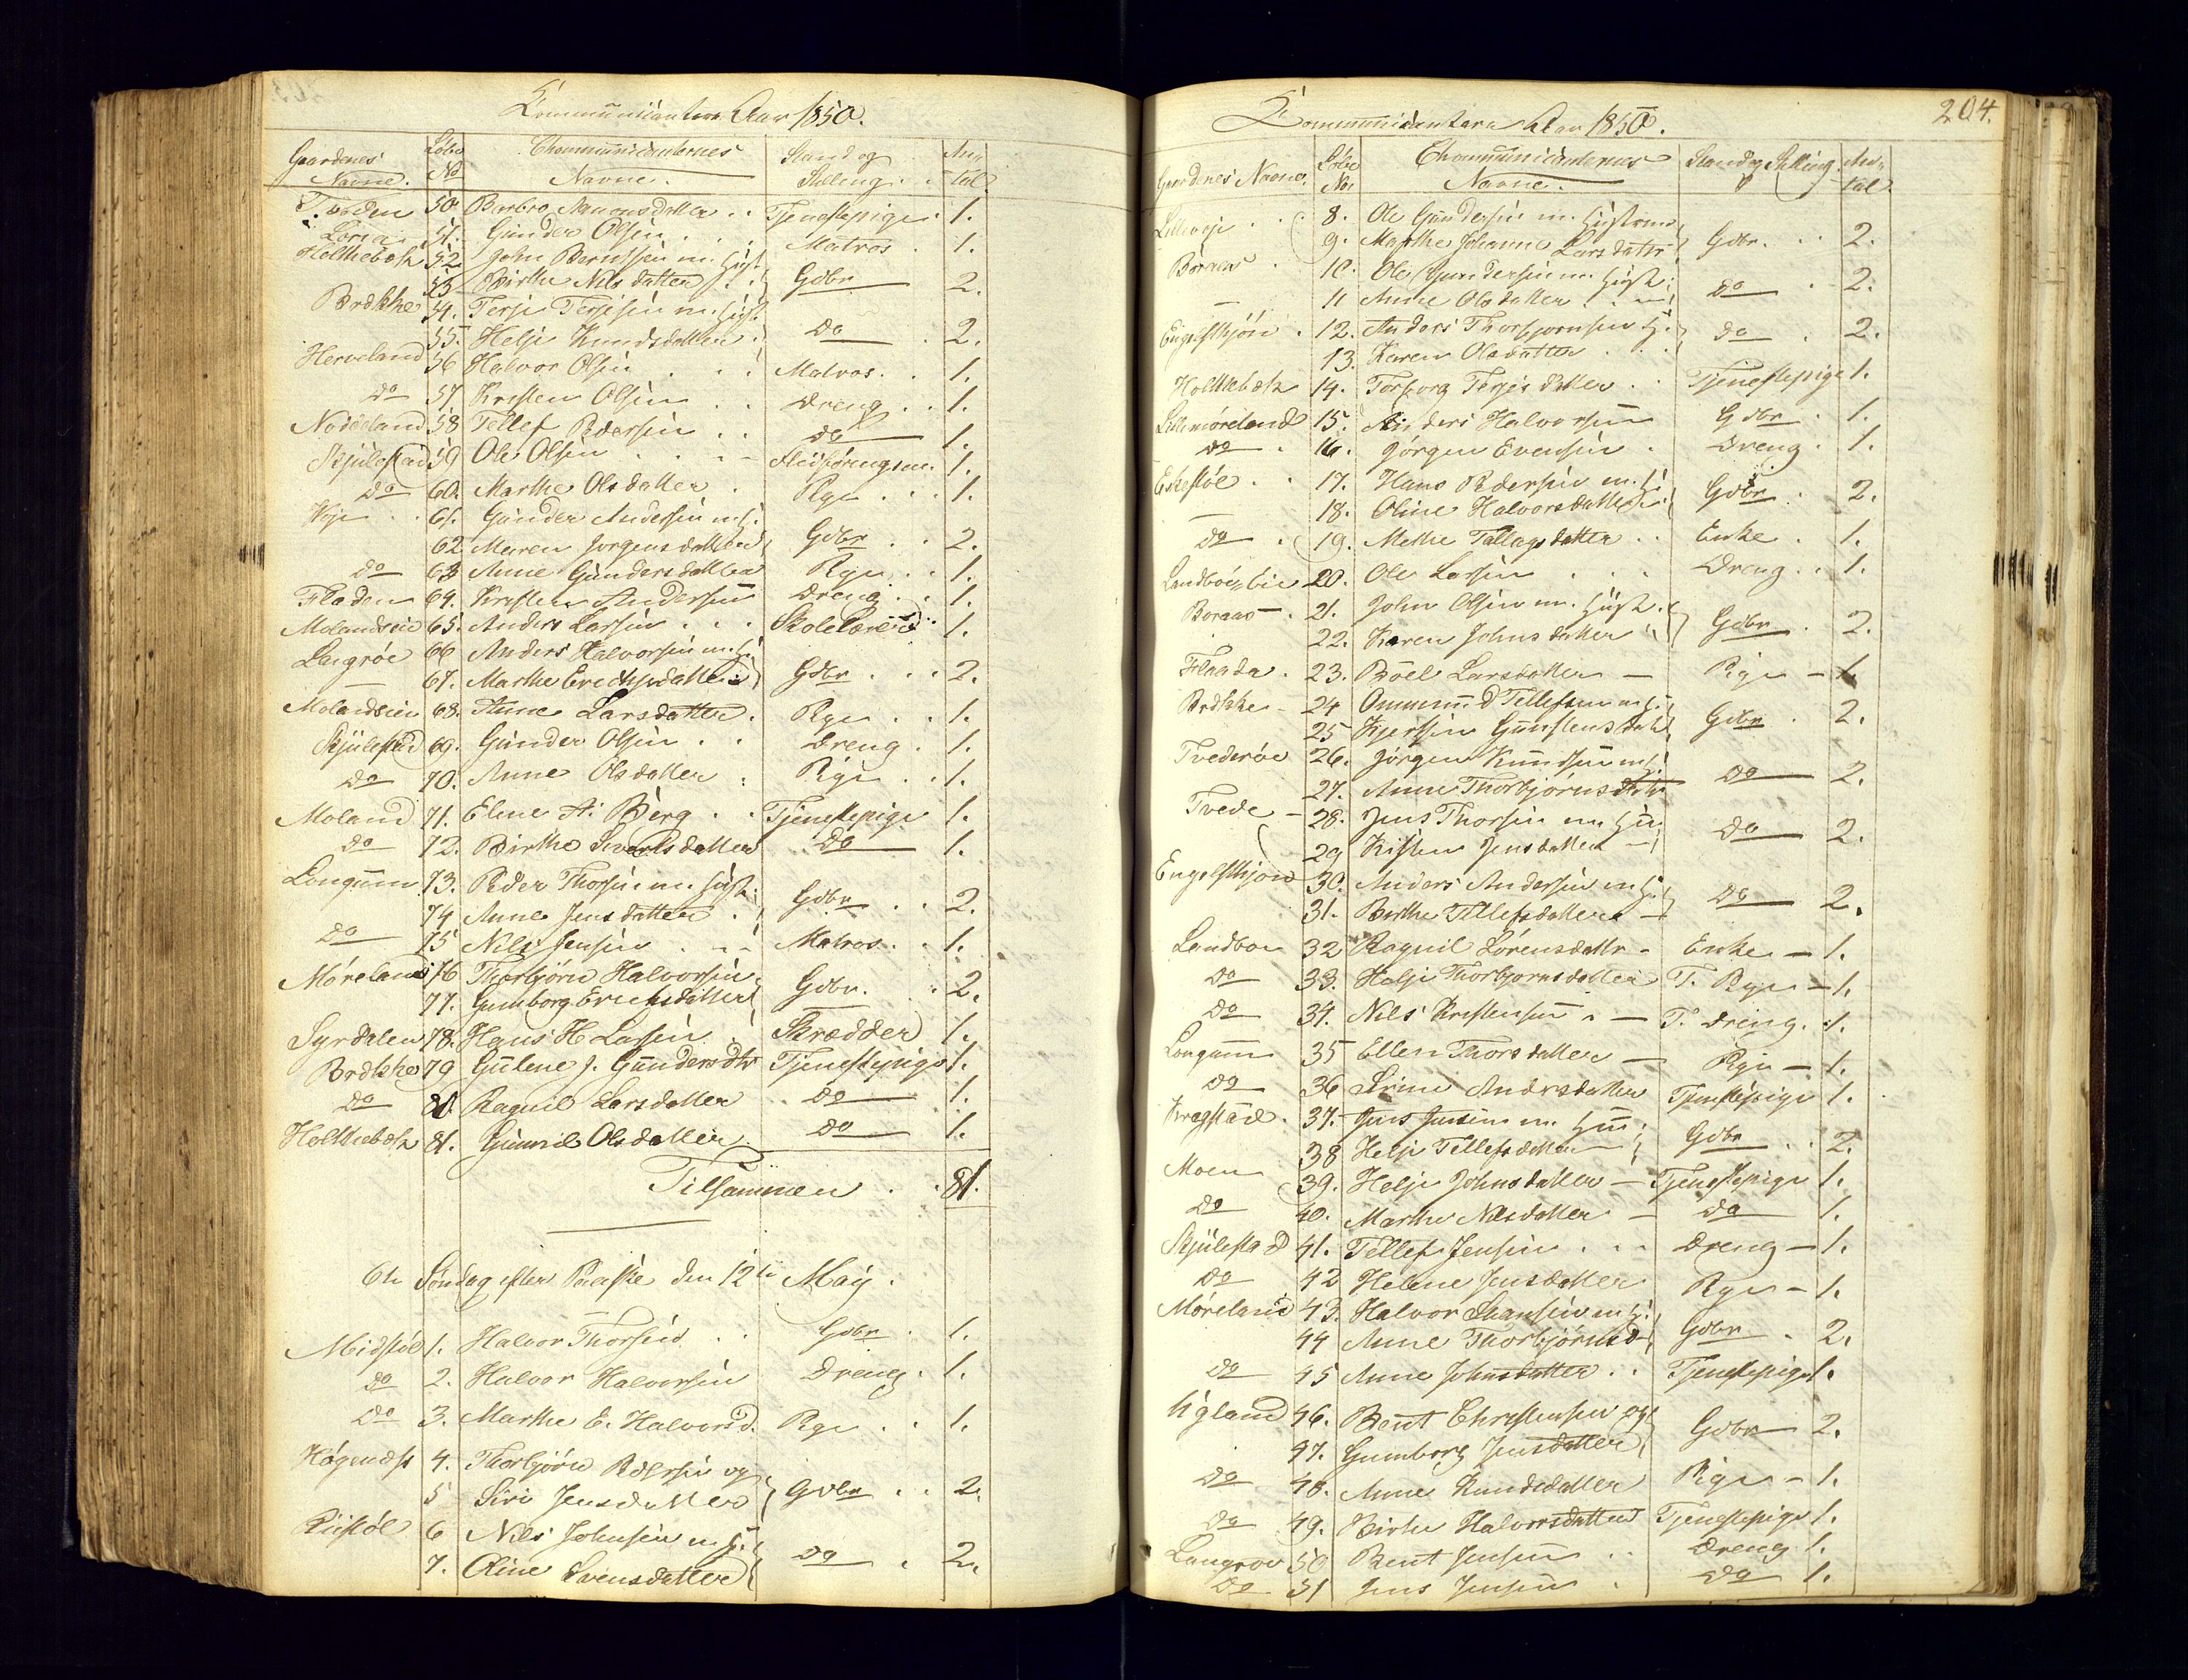 Communicantere Aar 1850.
Gaardenes Navne. Løbe No Communicanternes Navne. Stand og Stilling. Antal
50. Barbro Aanonsdatter Tjenestepige. 1.
51. Gunder Olsen Matros 1.
Holthebæk 52 John Berntsen m. Hust.
53 Birthe Nilsdatter Gdbr 2.
Brække 54. Terje Terjesen m. Hust
55. Helje Knudsdatter do 2.
Herveland 56 Halvor Olsen Matros. 1.
do 57 Kristen Olsen Dreng 1.
Noddeland 58 Tellef Pedersen do 1.
Skjulestad 59 Ole Olsen 1.
do 60. Marthe Olsdatter Pige 1.
Weje 61. Gunder Andersen m. H.
62 Maren Jørgensdatter Gdbr 2.
do 63 Anne Gundersdatter Pige 1.
Fladen 64. Kristen Andersen Dreng 1.
Molandseie 65. Anders Larsen Skolelærer 1.
Langrøe 66 Anders Halvorsen m. H.
67. Marthe Erichsdatter Gdbr 2.
Molandseie 68. Anne Larsdatter. Pige 1.
Skjulestad 69. Gunder Olsen Dreng 1.
do 70. Anne Olsdatter Pige 1.
Moland 71. Elene A. Berg Tjenestepige 1.
do 72. Birthe Sivertsdatter do 1.
Longum 73. Peder Thorsen m. Hust.
74 Anne Jensdatter Gdbr 2.
do 75 Nils Jensen Matros 1.
Møreland 76 Thorbjørn Halvorsen
77. Gunborg Erichsdatter Gdbr. 2.
Syrdalen 78. Hans H Larsen Skrædder 1.
Brække 79 Gulene J. Gundersdtr Tjenestepige 1.
do 80. Ragnil Larsdatter do 1.
Holthebæk 81. Gunnil Olsdatter do 1.
Tilsammen 81.
6te Søndag efter Paaske den 12te May.
Midstøl 1. Halvor Thorsen Gdbr 1.
do 2. Halvor Halvorsen Dreng. 1.
do 3. Marthe E. Halvorsd. Pige 1.
Høgenæs 4. Thorbjørn Pedersen og
5 Siri Jensdatter Gdbr 2.
Riistøl 6 Nils Johnsen m. H.
7. Oline Svensdatter do 2.
204.
Communicantere Aar 1850.
Gaardenes Navne. Løbe No. Communicanternes Navne. Stand og Stilling. Antal
Lilleveje 8. Ole Gundersen m. Hustrue
9. Marthe Johanne Larsdatter Gdbr. 2.
Boraas 10. Ole Gundersen m. Hust.
11 Anne Olsdatter do 2.
Engelsthjøn 12. Anders Thorbjørnsen H.
13. Karen Olsdatter do 2.
Holthebæk 14. Torborg Terjesdatter Tjenestepige 1.
Lillemøreland 15. Anders Halvorsen Gdbr 1.
do 16. Jørgen Evensen Dreng. 1.
Eskestøl 17. Hans Pedersen m. H.
18. Oline Halvorsdatter Gdbr 2.
do 19. Methe Tallagsdatter Enke 1.
20. Ole Larsen Dreng 1.
Boraas 21. John Olsen m. Hust.
22. Karen Johnsdatter Gdbr 2.
Flaada 23. Boel Larsdatter Pige 1.
Brække 24 Ommund Tellefsen m. H.
25 Kjersten Gunstensdatt Gdbr 2.
Tvederøe 26. Jørgen Knudsen m. H.
27. Anne Thorbjørnsdatr do 2.
Tvede 28. Jens Thorsen m. Hu.
29 Kisten Jensdatter do 2.
Engelsthjøn 30. Anders Andersen m. H.
31. Birthe Tellefsdatter do 2.
Landboe 32 Ragnil Lørensdattr Enke 1.
do 33. Helje Thorbjørnsdatter T. Pige 1.
do 34. Nils Kristensen T. Dreng. 1.
Longum 35 Ellen Thorsdatter Pige 1.
do 36 Srine Andersdatter Tjenestepige 1.
Kragstad 37. Jens Jensen m. Hu.
38 Helje Tellefsdatter Gdbr 2.
Moen 39. Helje Johnsdatter Tjenestepige 1.
do 40. Marthe Nilsdatter do 1.
Skjulestad 41. Tellef Jensen Dreng 1.
do 42 Helene Jensdatter Pige 1.
Møreland 43. Halvor Hansen m. H.
44 Anne Thorbjørnsd Gdbr 2.
do 45 Anne Johnsdatter Tjenestepige 1.
Ugland 46. Bent Christensen og
47. Gunborg Jensdatter Gdbr 2.
do 48. Anne Knudsdatter Pige 1.
do 49. Birthe Halvorsdatter Tjenestepige 1.
Langrøe 50 Bent Jensen Dreng 1.
do 51 Jens Jensen do 1.